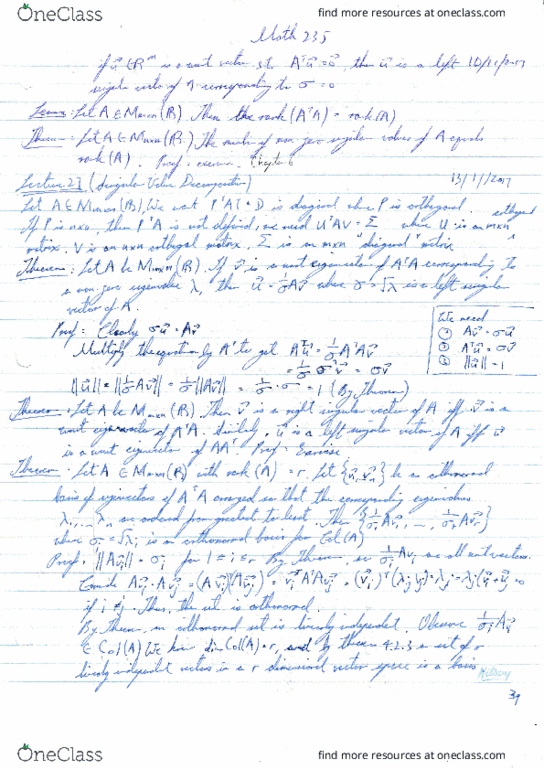 OneClass
find more resources at oneclass.com
Math 235
if u⃗ ∈ ℝᵐ is a unit vector s.t. Aᵀu⃗ = 0⃗, then u⃗ is a left
singular vector of A corresponding to σ = 0
Lemma: Let A ∈ Mmxn(R). Then the rank(AᵀA) = rank(A)
Theorem: Let A ∈ Mmxn(R). The number of non zero singular values of A equals
rank(A). Proof: exercise. Chapter 6
Lecture 27 (Singular Value Decomposition) 13/11/2017
Let A ∈ Mmxn(R) We want PᵀAP = D is diagonal where P is orthogonal.
If P is nxn, then PᵀA is not defined, we need UᵀAV = Σ where U is an mxm orthogonal
matrix. V is an nxn orthogonal matrix. Σ is an mxn "diagonal" matrix
Theorem: Let A be Mmxn(R). If v⃗ is a unit eigenvector of AᵀA corresponding to
a non zero eigenvalue λ, then u⃗ = 1/σ Av⃗ where σ = √λ is a left singular
vector of A.
We need
① Av⃗ = σu⃗
② Aᵀu⃗ = σv⃗
③ ||u⃗|| = 1
Proof: Clearly σu⃗ = Av⃗
Multiply the equation by Aᵀ to get Aᵀu⃗ = 1/σ AᵀAv⃗
= 1/σ σ²v⃗ = σv⃗
||u⃗|| = ||1/σ Av⃗|| = 1/σ ||Av⃗|| = 1/σ · σ = 1 (By Theorem)
Theorem: Let A be Mmxn(R). Then v⃗ is a right singular vector of A iff v⃗ is a
unit eigenvector of AᵀA. Similarly, u⃗ is a left singular vector of A iff u⃗
is a unit eigenvector of AAᵀ Proof: Exercise.
Theorem: Let A ∈ Mmxn(R) with rank(A) = r. Let {v⃗₁, v⃗ₙ} be an orthonormal
basis of eigenvectors of AᵀA arranged so that the corresponding eigenvalues
λ₁, ..., λₙ are ordered from greatest to least. Then {1/σ₁ Av⃗₁, ..., 1/σᵣ Av⃗ᵣ}
where σᵢ = √λᵢ is an orthonormal basis for Col(A)
Proof: ||Av⃗ᵢ|| = σᵢ for 1 ≤ i ≤ r By Theorem, so 1/σᵢ Avᵢ are all unit vectors.
if i ≠ j. Thus, the set is orthonormal.
By Theorem, an orthonormal set is linearly independent. Observe 1/σᵢ Av⃗ᵢ
∈ Col(A) We have dim Col(A) = r, and by theorem 4.2.3 a set of r
linearly independent vectors in a r dimensional vector space is a basis
39
OneClass
find more resources at oneclass.com